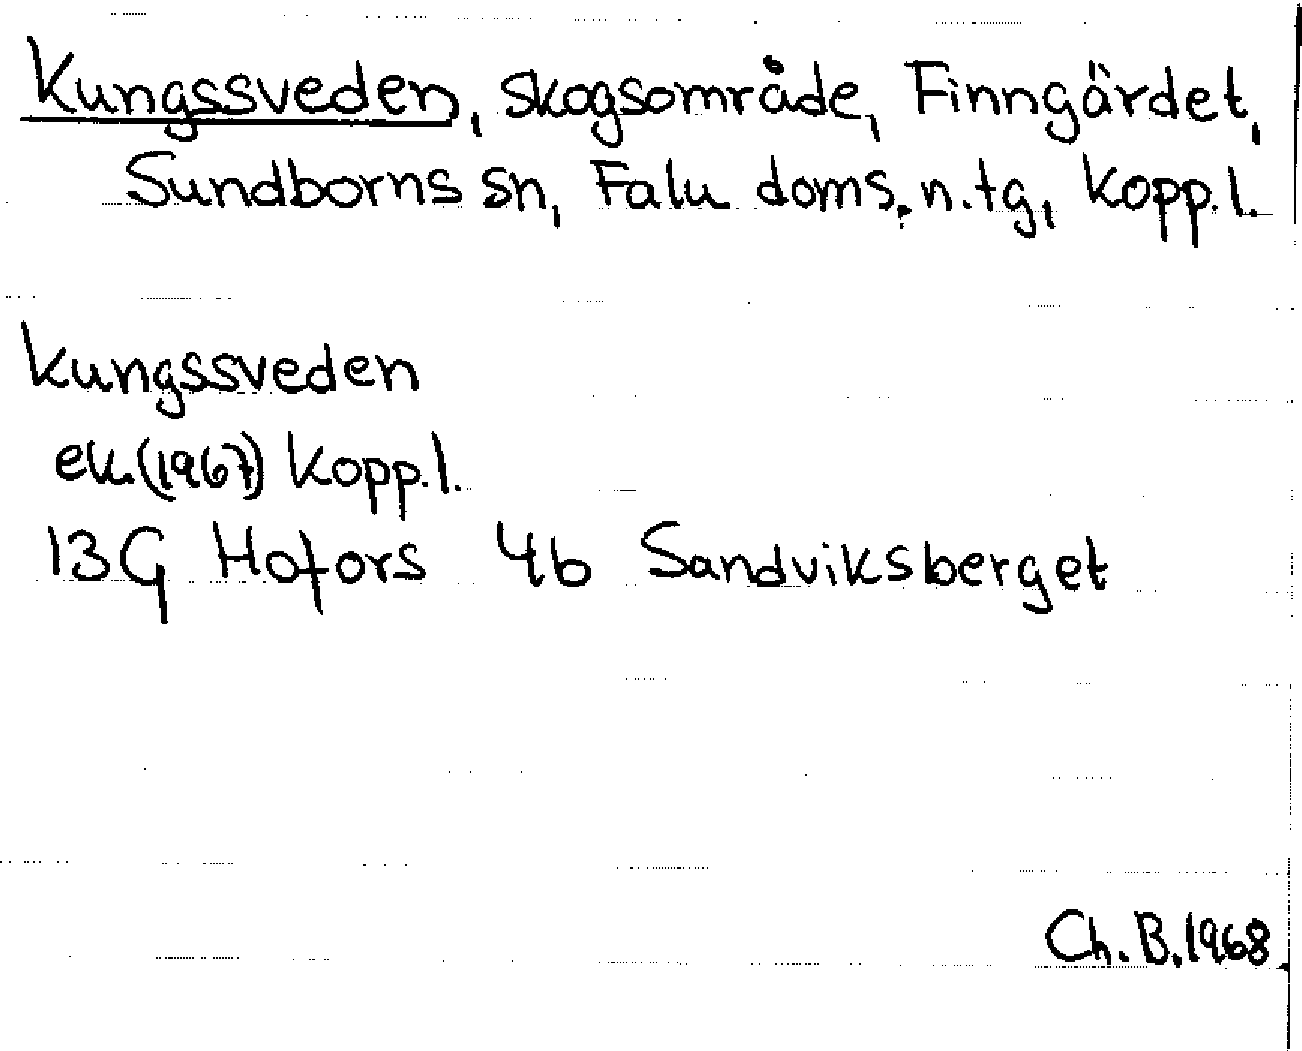 Kungssveden, skogsområde, Finngärdet,
Sundborns sn, Falu doms. n. tg, Kopp. l.
Kungssveden
ek. (1967) Kopp. l.
13G Hofors 4b Sandviksberget
Ch. B. 1968.